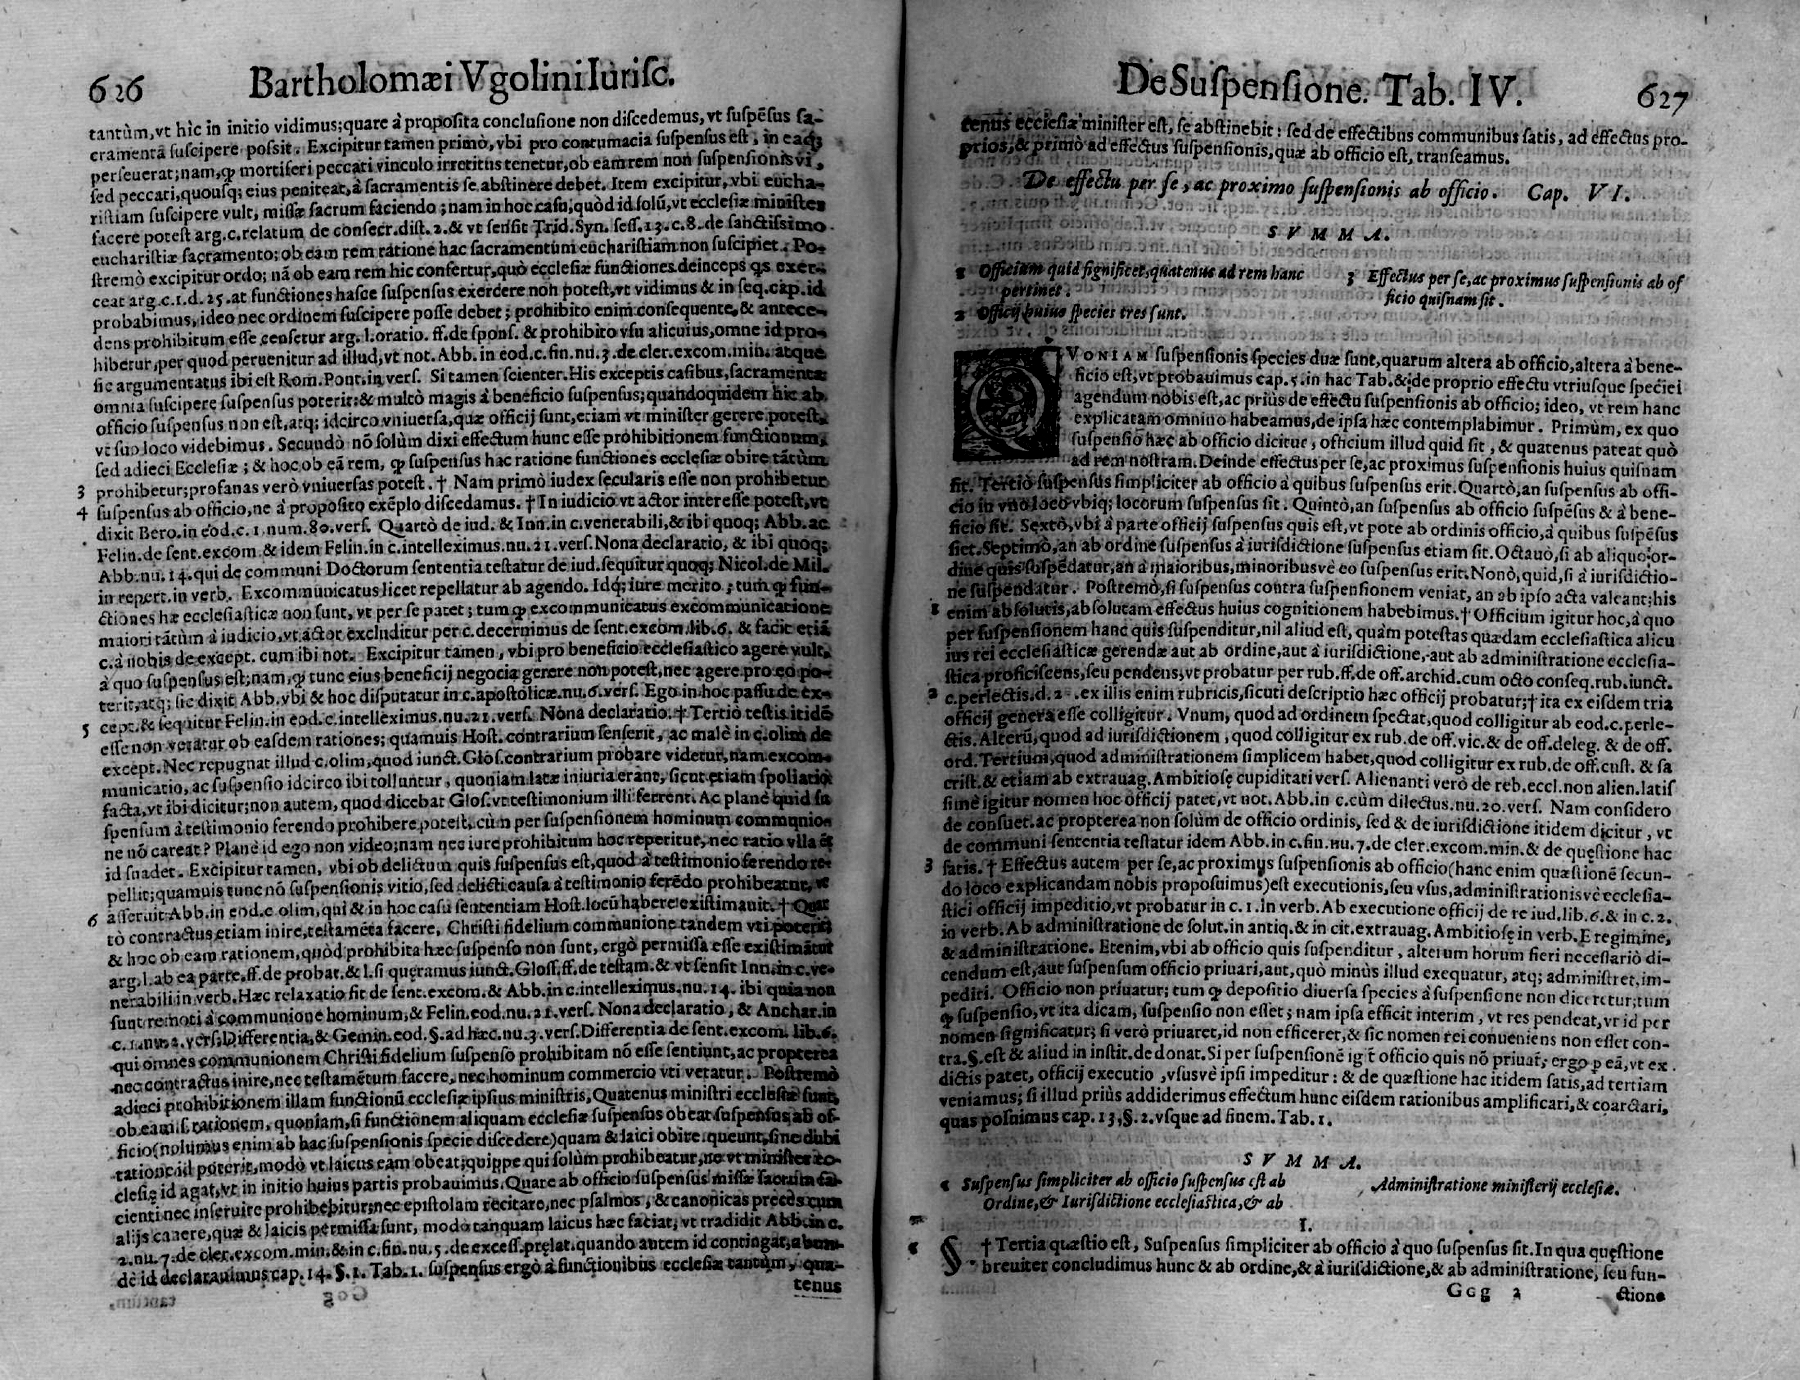 626 Bartholomæi Vgolini Iurisc.
tantùm, vt hìc in initio vidimus; quare à proposita conclusione non discedemus, vt suspẽsus sa-
cramenta suscipere possit. Excipitur tamen primò, vbi pro contumacia suspensus est, in eaq;
perseuerat; nam, ꝙ mortiferi peccati vinculo irretitus tenetur, ob eam rem non suspensionis vi,
sed peccati, quousq; eius peniteat, à sacramentis se abstinere debet. Item excipitur, vbi eucha-
ristiam suscipere vult, missæ sacrum faciendo; nam in hoc casu, quòd id solũ, vt ecclesiæ minister
facere potest arg. c. relatum de consecr. dist. 2. & vt sensit Trid. Syn. sess. 13. c. 8. de sanctissimo
eucharistiæ sacramento; ob eam rem ratione hac sacramentum eucharistiam non suscipiet. Po-
stremò excipitur ordo; nã ob eam rem hic confertur, quò ecclesiæ functiones deinceps qs exer-
ceat arg. c. 1. d. 25. at functiones hasce suspensus exercere non potest, vt vidimus & in seq. cap. id
probabimus, ideo nec ordinem suscipere posse debet; prohibito enim consequente, & antece-
dens prohibitum esse censetur arg. l. oratio. ff. de spons. & prohibito vsu alicuius, omne id pro-
hibetur, per quod peruenitur ad illud, vt not. Abb. in eod. c. fin. nu. 3. de cler. excom. min. atque
sic argumentatus ibi est Rom. Pont. in vers. Si tamen scienter. His exceptis casibus, sacramenta
omnia suscipere suspensus poterit; & multò magis à beneficio suspensus; quandoquidem hic ab
officio suspensus non est, atq; idcirco vniuersa, quæ officij sunt, etiam vt minister gerere potest,
vt suo loco videbimus. Secundò nõ solùm dixi effectum hunc esse prohibitionem functionum,
sed adieci Ecclesiæ; & hoc ob eã rem, ꝙ suspensus hac ratione functiones ecclesiæ obire tãtùm
3 prohibetur; profanas verò vniuersas potest. † Nam primò iudex secularis esse non prohibetur
4 suspensus ab officio, ne à proposito exẽplo discedamus. † In iudicio vt actor interesse potest, vt
dixit Bero. in eod. c. 1. num. 80. vers. Quartò de iud. & Inn. in c. venerabili, & ibi quoq; Abb. ac
Felin. de sent. excom. & idem Felin. in c. intelleximus. nu. 21. vers. Nona declaratio, & ibi quoq;
Abb. nu. 14. qui de communi Doctorum sententia testatur de iud. sequitur quoq; Nicol. de Mil.
in repert. in verb. Excommunicatus licet repellatur ab agendo. Idq; iure merito; tum ꝙ fun-
ctiones hæ ecclesiasticæ non sunt, vt per se patet; tum ꝙ excommunicatus excommunicatione
maiori tãtùm à iudicio, vt actor excluditur per c. decernimus de sent. excom. lib. 6. & facit etiã
c. à nobis de except. cum ibi not. Excipitur tamen, vbi pro beneficio ecclesiastico agere vult,
à quo suspensus est; nam, ꝙ tunc eius beneficij negocia gerere non potest, nec agere pro eo po-
terit, atq; sic dixit Abb. vbi & hoc disputatur in c. apostolicæ. nu. 6. vers. Ego in hoc passu de ex-
5 cept. & sequitur Felin. in eod. c. intelleximus. nu. 21. vers. Nona declaratio. † Tertiò testis itidẽ
esse non vetatur ob easdem rationes; quamuis Host. contrarium senserit, ac malè in c. olim de
except. Nec repugnat illud c. olim, quod iunct. Glos. contrarium probare videtur, nam excom-
municatio, ac suspensio idcirco ibi tolluntur, quoniam latæ iniuria erant, sicut etiam spoliatio
facta, vt ibi dicitur; non autem, quod dicebat Glos. vt testimonium illi ferrent. Ac planè quid su
spensum à testimonio ferendo prohibere potest, cùm per suspensionem hominum communio-
ne nõ careat? Planè id ego non video; nam nec iure prohibitum hoc reperitur, nec ratio vlla est
id suadet. Excipitur tamen, vbi ob delictum quis suspensus est, quod à testimonio ferendo re-
pellit; quamuis tunc nõ suspensionis vitio, sed delicti causa à testimonio ferẽdo prohibeatur, vt
6 asseruit Abb. in eod. c. olim, qui & in hoc casu sententiam Host. locũ habere existimauit. † Quar
tò contractus etiam inire, testamẽta facere, Christi fidelium communione tandem vti poterit;
& hoc ob eam rationem, quòd prohibita hæc suspenso non sunt, ergò permissa esse existimãtur
arg. l. ab ea parte. ff. de probat. & l. si quęramus iunct. Gloss. ff. de testam. & vt sensit Inn. in c. ve-
nerabili in verb. Hæc relaxatio fit de sent. excom. & Abb. in c. intelleximus. nu. 14. ibi quia non
sunt remoti à communione hominum, & Felin. eod. nu. 21. vers. Nona declaratio, & Anchar. in
c. 1. nu. 2. vers. Differentia, & Gemin. eod. §. ad hæc. nu. 3. vers. Differentia de sent. excom. lib. 6.
qui omnes communionem Christi fidelium suspenso prohibitam nõ esse sentiunt, ac propterea
nec contractus inire, nec testamẽtum facere, nec hominum commercio vti vetatur. Postremò
adieci prohibitionem illam functionũ ecclesiæ ipsius ministris, Quatenus ministri ecclesiæ sunt,
ob eam s. rationem, quoniam, si functionem aliquam ecclesiæ suspensus obeat suspensus ab of-
ficio (nolumus enim ab hac suspensionis specie discedere) quam & laici obire queunt, sine dubi
tatione id poterit, modò vt laicus eam obeat; quippe qui solùm prohibeatur, ne vt minister ec-
clesię id agat, vt in initio huius partis probauimus. Quare ab officio suspensus missæ sacrum fa-
cienti nec inseruire prohibebitur; nec epistolam recitare, nec psalmos, & canonicas preces cum
alijs canere, quæ & laicis permissa sunt, modo tanquam laicus hæc faciat, vt tradidit Abb. in c.
2. nu. 7. de cler. excom. min. & in c. fin. nu. 5. de excess. pręlat. quando autem id contingat, abun-
dè id declarauimus cap. 14. §. 1. Tab. 1. suspensus ergò à functionibus ecclesiæ tantùm, qua-
tenus
De Suspensione. Tab. IV. 627
tenus ecclesiæ minister est, se abstinebit: sed de effectibus communibus satis, ad effectus pro-
prios, & primò ad effectus suspensionis, quæ ab officio est, transeamus.
De effectu per se, ac proximo suspensionis ab officio. Cap. VI.
SVMMA.
1 Officium quid significet, quatenus ad rem hanc
pertinet.
2 Officij huius species tres sunt.
3 Effectus per se, ac proximus suspensionis ab of
ficio quisnam sit.
QVONIAM suspensionis species duæ sunt, quarum altera ab officio, altera à bene-
ficio est, vt probauimus cap. 5. in hac Tab. & de proprio effectu vtriusque speciei
agendum nobis est, ac priùs de effectu suspensionis ab officio; ideo, vt rem hanc
explicatam omnino habeamus, de ipsa hæc contemplabimur. Primùm, ex quo
suspensio hæc ab officio dicitur, officium illud quid sit, & quatenus pateat quò
ad rem nostram. Deinde effectus per se, ac proximus suspensionis huius quisnam
sit. Tertiò suspensus simpliciter ab officio à quibus suspensus erit. Quartò, an suspensus ab offi-
cio in vno loco vbiq; locorum suspensus sit. Quintò, an suspensus ab officio suspẽsus & à bene-
ficio sit. Sextò, vbi à parte officij suspensus quis est, vt pote ab ordinis officio, à quibus suspẽsus
siet. Septimò, an ab ordine suspensus à iurisdictione suspensus etiam sit. Octauò, si ab aliquo or-
dine quis suspẽdatur, an à maioribus, minoribusvè eo suspensus erit. Nonò, quid, si à iurisdictio-
ne suspendatur. Postremò, si suspensus contra suspensionem veniat, an ab ipso acta valeant; his
1 enim absolutis, absolutam effectus huius cognitionem habebimus. † Officium igitur hoc, à quo
per suspensionem hanc quis suspenditur, nil aliud est, quàm potestas quædam ecclesiastica alicu
ius rei ecclesiasticæ gerendæ aut ab ordine, aut à iurisdictione, aut ab administratione ecclesia-
stica proficiscens, seu pendens, vt probatur per rub. ff. de off. archid. cum octo conseq. rub. iunct.
2 c. perlectis. d. 2 . ex illis enim rubricis, sicuti descriptio hæc officij probatur; † ita ex eisdem tria
officij genera esse colligitur. Vnum, quod ad ordinem spectat, quod colligitur ab eod. c. perle-
ctis. Alterũ, quod ad iurisdictionem, quod colligitur ex rub. de off. vic. & de off. deleg. & de off.
ord. Tertium, quod administrationem simplicem habet, quod colligitur ex rub. de off. cust. & sa
crist. & etiam ab extrauag. Ambitiosę cupiditati vers. Alienanti verò de reb. eccl. non alien. latis
simè igitur nomen hoc officij patet, vt not. Abb. in c. cùm dilectus. nu. 20. vers. Nam considero
de consuet. ac propterea non solùm de officio ordinis, sed & de iurisdictione itidem dicitur, vt
de communi sententia testatur idem Abb. in c. fin. nu. 7. de cler. excom. min. & de quęstione hac
3 satis. † Effectus autem per se, ac proximus suspensionis ab officio (hanc enim quæstionẽ secun-
do loco explicandam nobis proposuimus) est executionis, seu vsus, administrationisvè ecclesia-
stici officij impeditio, vt probatur in c. 1. in verb. Ab executione officij de re iud. lib. 6. & in c. 2.
in verb. Ab administratione de solut. in antiq. & in cit. extrauag. Ambitiosę in verb. E regimine,
& administratione. Etenim, vbi ab officio quis suspenditur, alterum horum fieri necessariò di-
cendum est, aut suspensum officio priuari, aut, quò minùs illud exequatur, atq; administret, im-
pediri. Officio non priuatur; tum ꝙ depositio diuersa species à suspensione non diceretur; tum
ꝙ suspensio, vt ita dicam, suspensio non esset; nam ipsa efficit interim, vt res pendeat, vt id per
nomen significatur; si verò priuaret, id non efficeret, & sic nomen rei conueniens non esset con-
tra. §. est & aliud in instit. de donat. Si per suspensionẽ igr̃ officio quis nõ priuat̃, ergo p eã, vt ex
dictis patet, officij executio, vsusvè ipsi impeditur: & de quæstione hac itidem satis, ad tertiam
veniamus; si illud priùs addiderimus effectum hunc eisdem rationibus amplificari, & coarctari,
quas posuimus cap. 13, §. 2. vsque ad finem. Tab. 1.
SVMMA.
1 Suspensus simpliciter ab officio suspensus est ab
Ordine, & Iurisdictione ecclesiastica, & ab
Administratione ministerij ecclesiæ.
I.
§ † Tertia quæstio est, Suspensus simpliciter ab officio à quo suspensus sit. In qua quęstione
breuiter concludimus hunc & ab ordine, & à iurisdictione, & ab administratione, seu fun-
Ggg 2 ctione